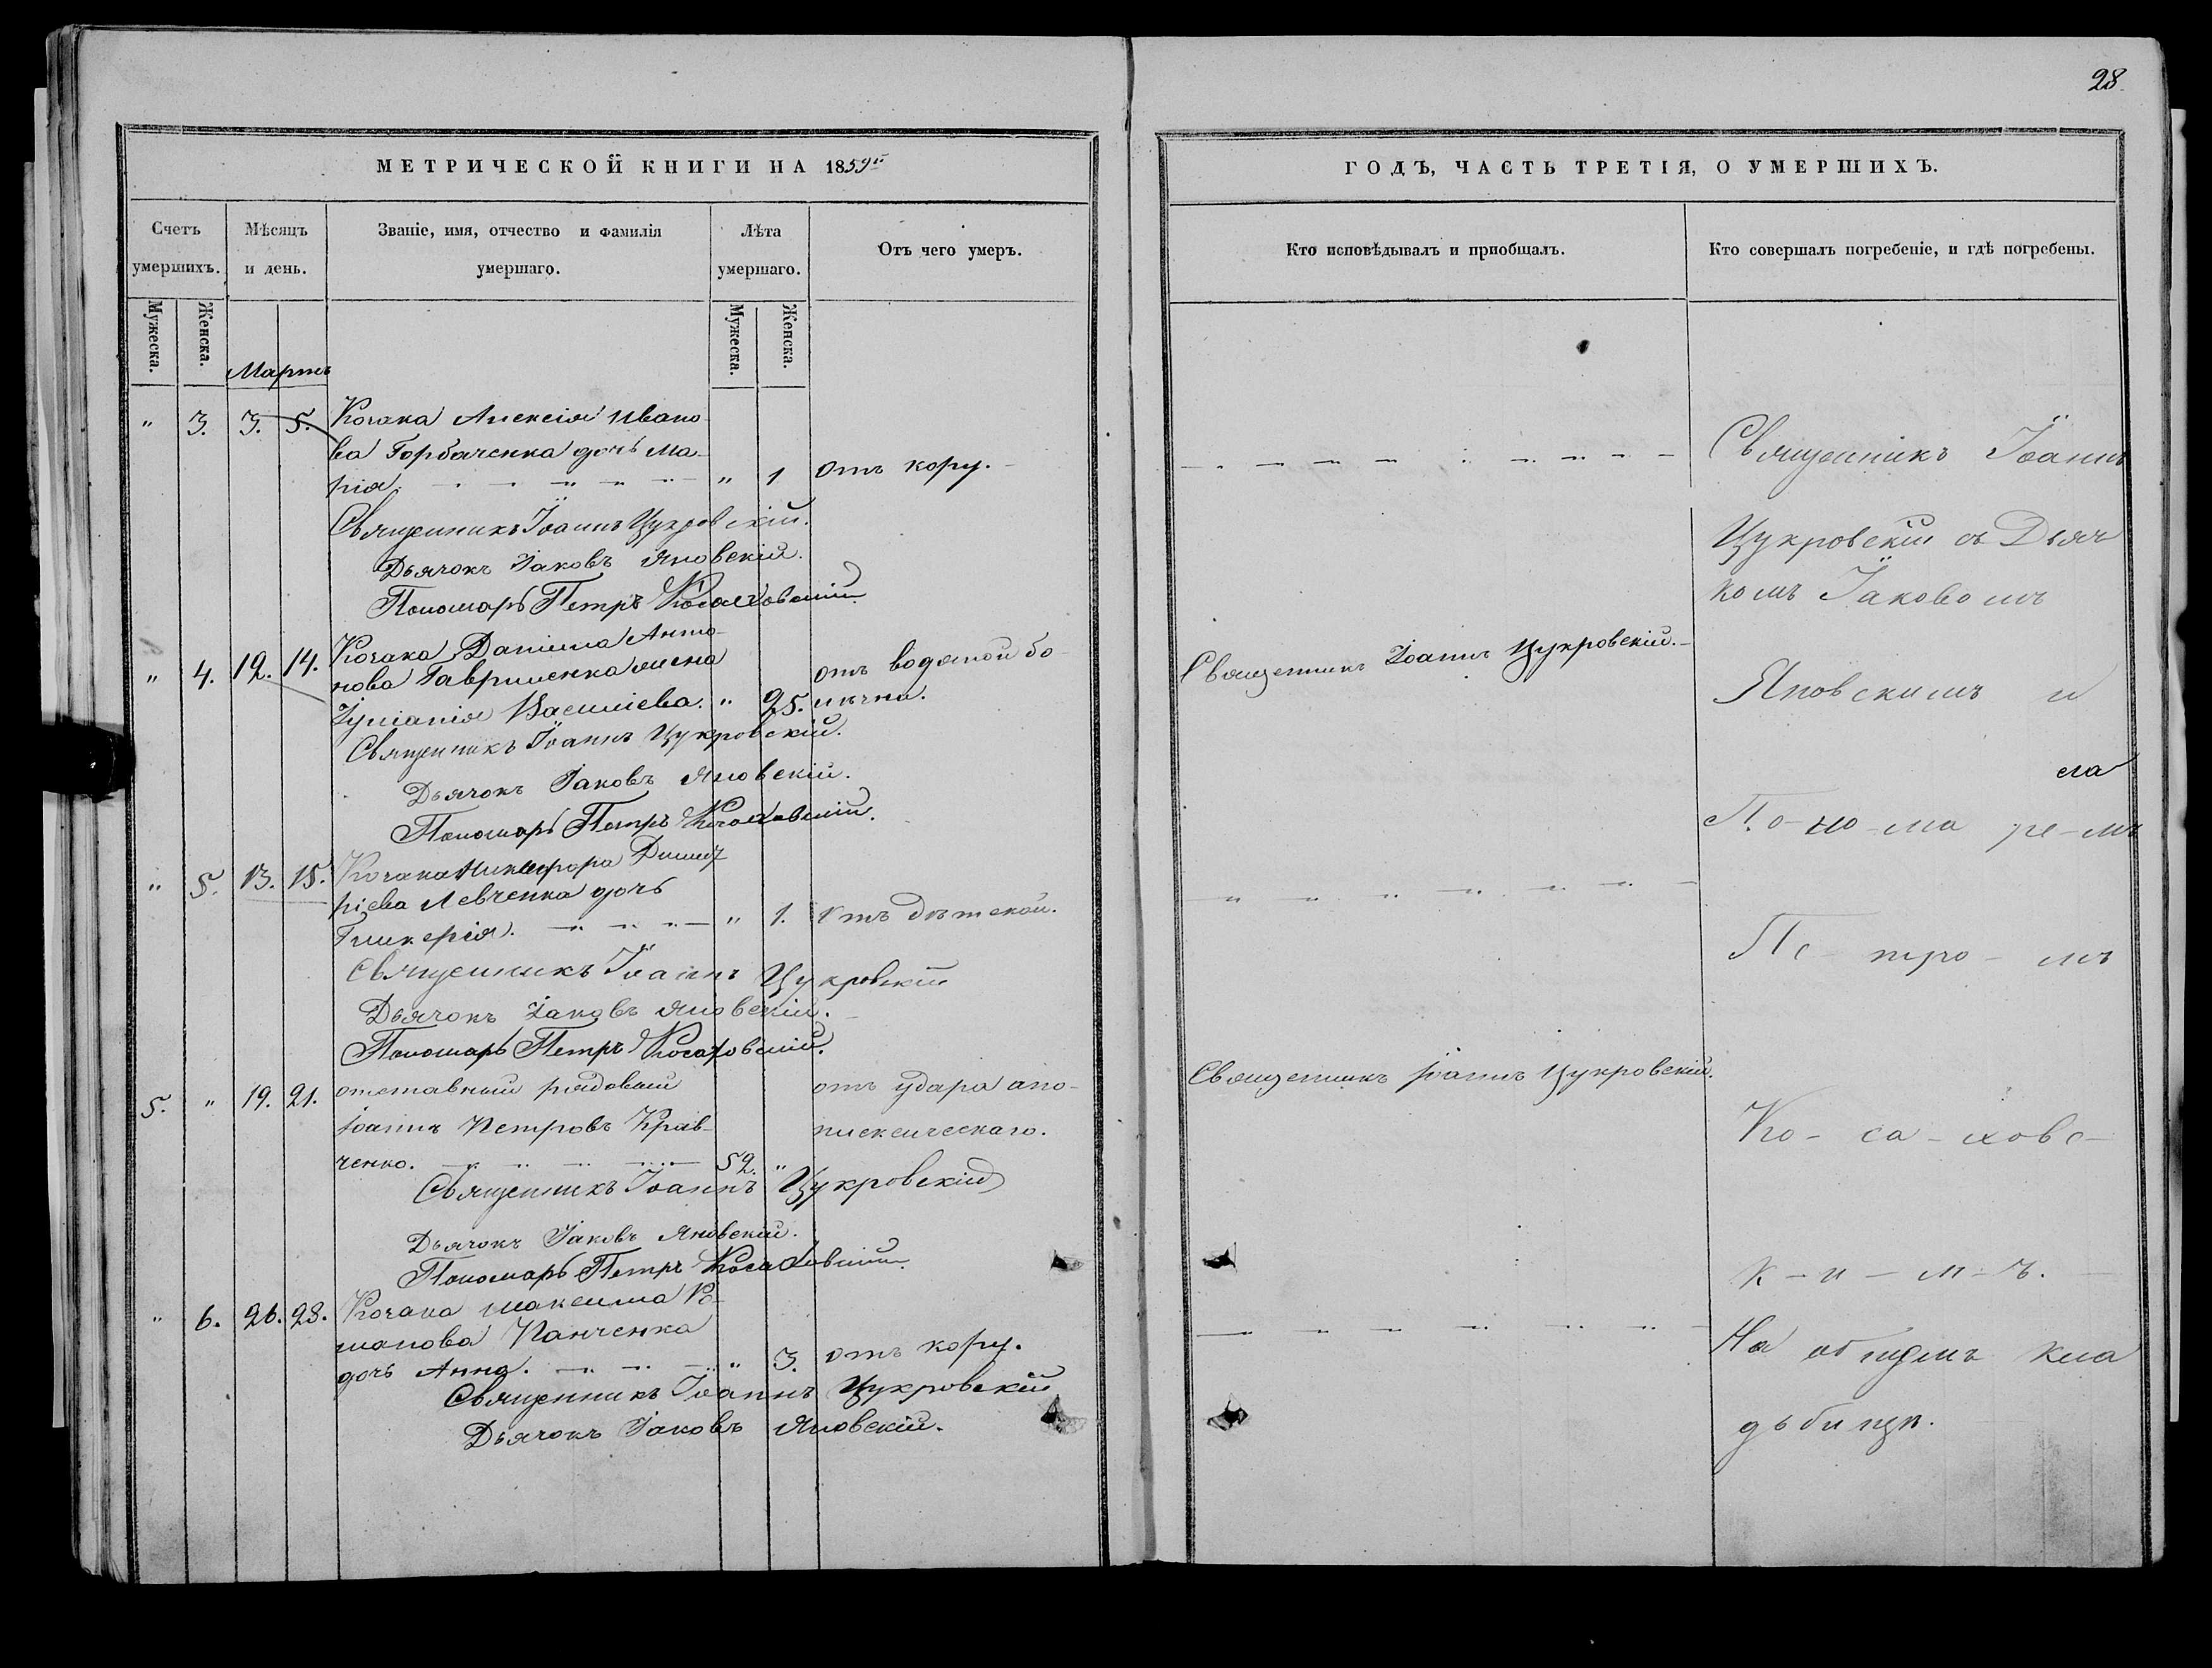 28.
МЕТРИЧЕСКОЙ КНИГИ НА 1859й
Счетъ умершихъ.
Мѣсяцъ и день.
Званіе, имя, отчество и фамилія умершаго.
Лѣта умершаго.
Отъ чего умеръ.
Мужеска.
Женска.
Мужеска.
Женска.
Мартъ
" 3. 3. 5. Козака Алексія Ивано-
ва Горбаченка дочь Ма-
рія. " 1 отъ кору.
Священникъ Іоаннъ Цукровскій.
Дьячокъ Іаковъ Яновскій.
Пономарь Петръ Косаховскій.
" 4. 12. 14. Козака Даніила Анто-
нова Гавриленка жена отъ водяной бо-
Іуліанія Василіева. " 25. лѣзни.
Священникъ Іоаннъ Цукровскій.
Дьячокъ Іаковъ Яновскій.
Пономарь Петръ Косаховскій.
" 5. 13. 15. Козака Никифора Димит
ріева Левченка дочь
Гликерія. " 1. Отъ дѣтской.
Священникъ Іоаннъ Цукровскій
Дьячокъ Іаковъ Яновскій.
Пономарь Петръ Косаховскій.
5. " 19. 21. отставный рядовый отъ удара апо-
Іоаннъ Петровъ Крав- плексическаго.
ченко. 52. "
Священникъ Іоаннъ Цукровскій
Дьячокъ Іаковъ Яновскій.
Пономарь Петръ Косаховскій.
" 6. 26. 28. Козака Максима Ро-
манова Панченка
дочь Анна. " 3. отъ кору.
Священникъ Іоаннъ Цукровскій
Дьячокъ Іаковъ Яновскій.
ГОДЪ, ЧАСТЬ ТРЕТІЯ, О УМЕРШИХЪ.
Кто исповѣдывалъ и пріобщалъ.
Кто совершалъ погребеніе, и гдѣ погребены.
Священникъ Іоанъ
Цукровскій съ Дьяч
комъ Іаковомъ
Священникъ Іоаннъ Цукровскій.
Яновскимъ и
По-но-ма ре-мъ
Пе-тро-мъ
Священникъ Іоаннъ Цукровскій.
Ко-са-ховс-
к-и-м-ъ.
На общемъ кла
дьбищѣ.